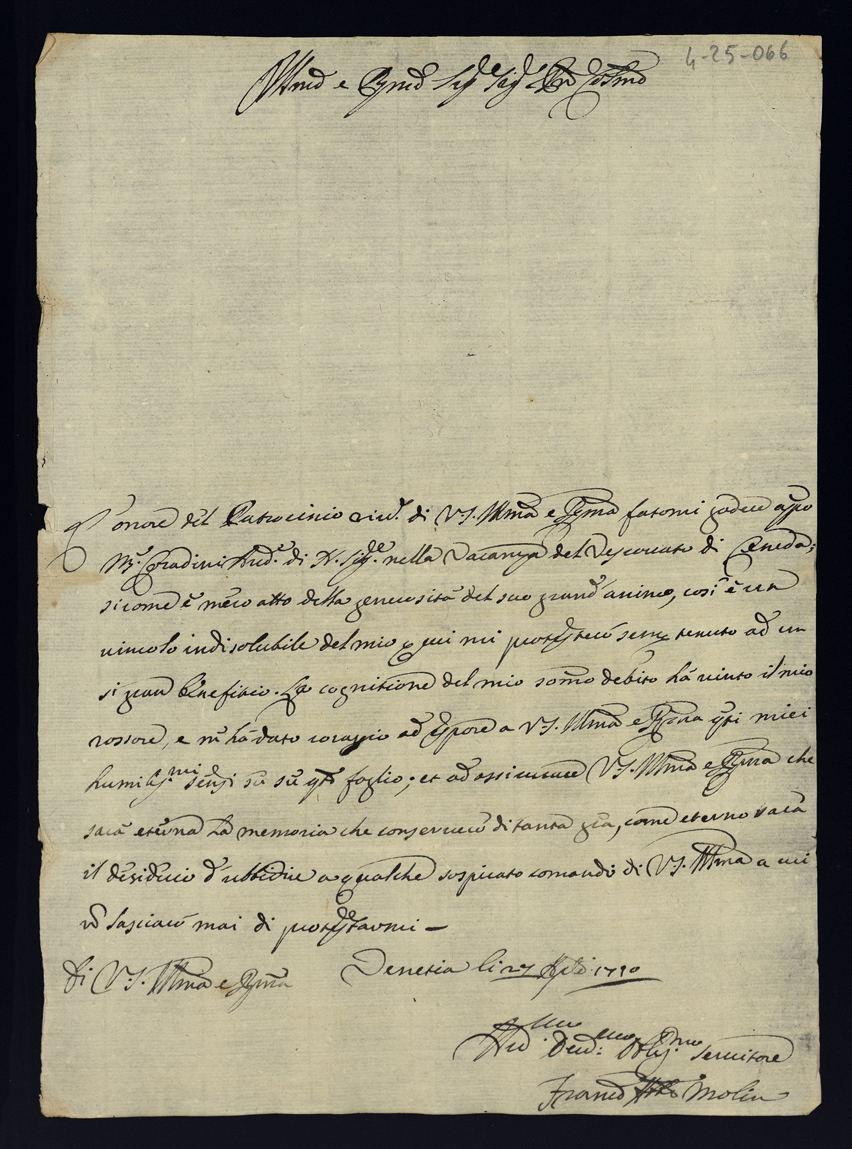 4-25-066
Illmo e Rmo Sig.e Sig.e Pron Colmo
L'onore del Patrocinio riv.o di V.S. Illma e Rma fatomi godere appo
M.r Coradini Aud.e di N. Sig.re nella vacanza del Vescovato di Ceneda,
sicome è mero atto della generosità del suo grand'animo, così è un
vincolo indisolubile del mio per cui mi protesterò sempre tenuto ad un
si gran benefizio. La cognitione del mio sommo debito hà vinto il mio
rossore, e m'hà dato coraggio ad esporre a V.S. Illma e Rma questi miei
humiliss.mi sensi su questo foglio; et ad assicurare V.S. Illma e Rma che
sarà eterna la memoria che conserverò di tanta gra, come eterno sarà
il desiderio d'ubbidire a qualche sospirato comando di V.S. Illma a cui
nõ lasciarò mai di protestarmi —
Di V.S. Illma e Rma Venetia li 27 1710
Hu.mo Deu.mo Oblig.mo Servitore
Franco Molin